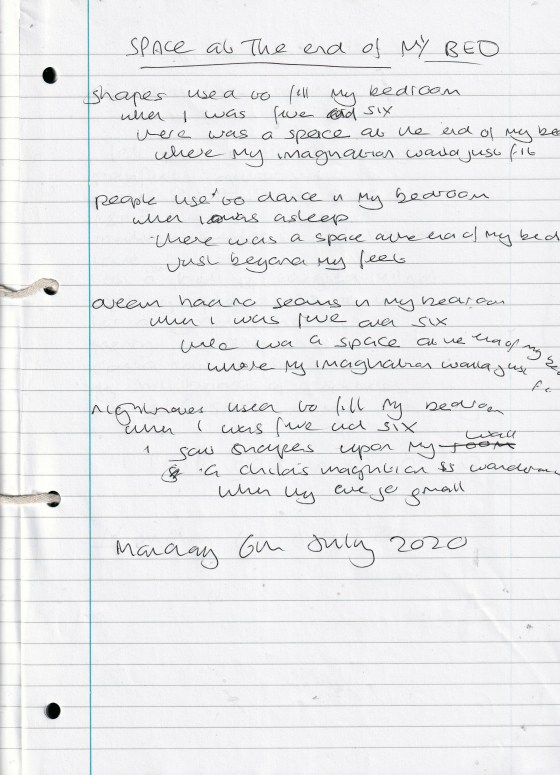 SPACE at The end of MY BED
shapes used to fill my bedroom
when I was five and six
there was a space at the end of my be
where my imagination would just fit
people use' to dance in my bedroom
when I was asleep
there was a space at the end of my bed
Just beyond my feet
dream had no seams in my bedroom
when I was five and six
there was a space at the end of my be
where my imagination would just
fi
nightmares used to fill my bedroom
when I was five and six
I saw shapes upon my room wall
a child's imagination is wonderou
when they are so small
Monday 6th July 2020